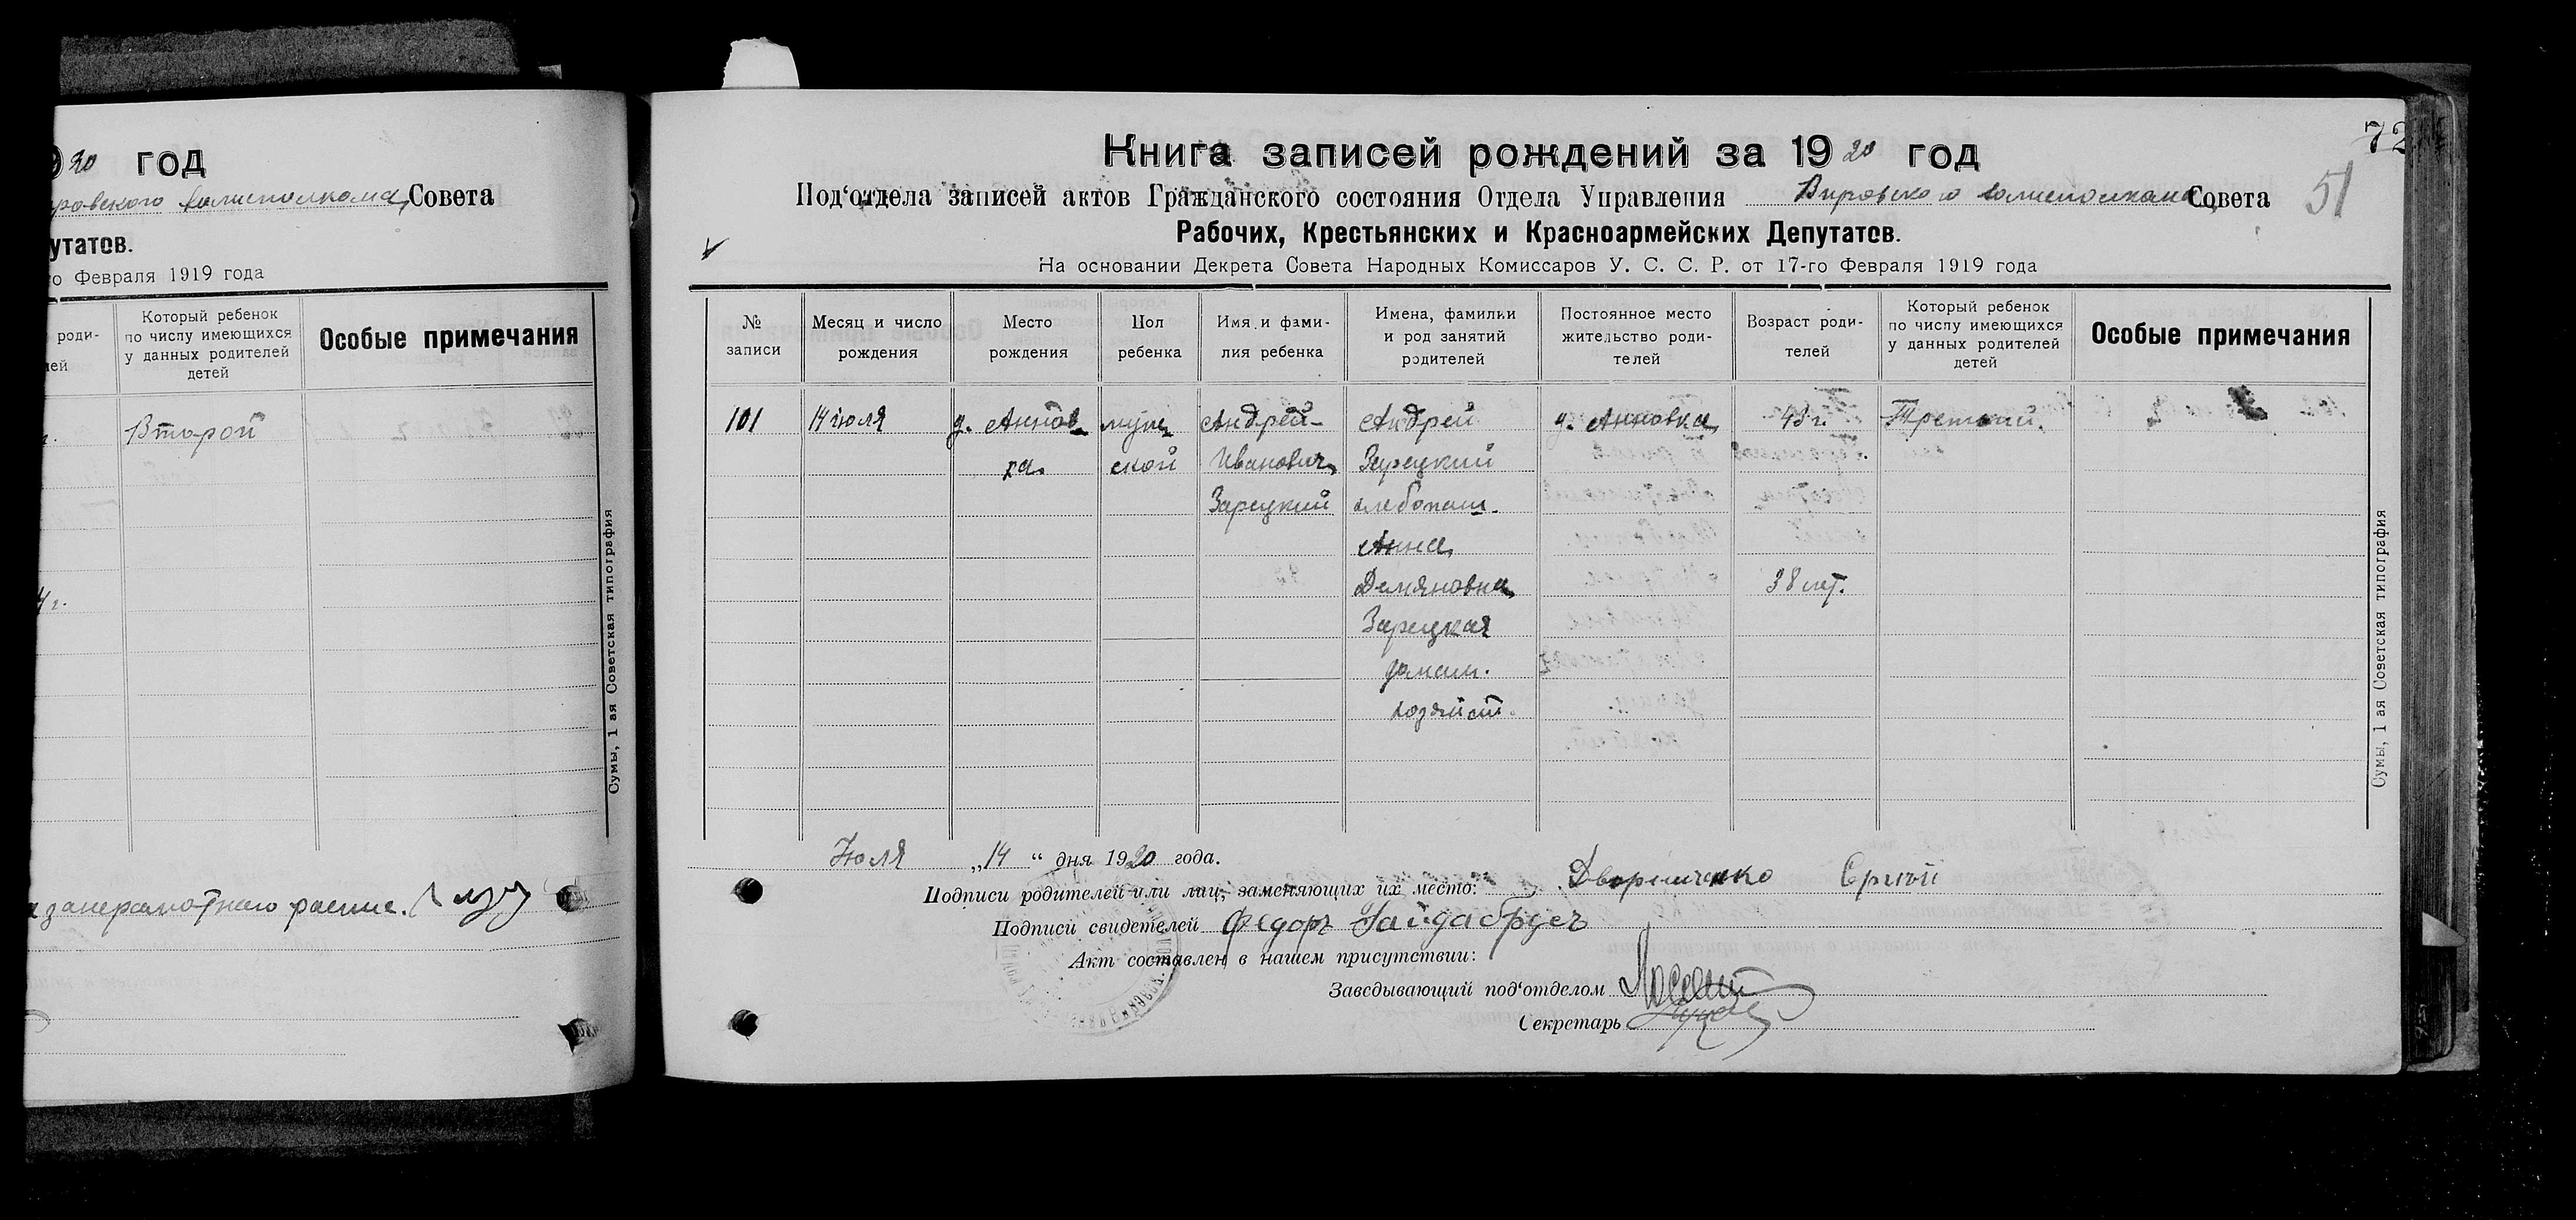 20 год
ровского волисполкома Совета
утатов.
го Февраля 1919 года
роди-
лей
Который ребенок
по числу имеющихся
у данных родителей
детей
Особые примечания
Второй
4 г.
Сумы, 1 ая Советская типография
72
51
Книга записей рождений за 1920 год
Под‘отдела записей актов Гражданского состояния Отдела Управления Вировского волисполкома Совета
Рабочих, Крестьянских и Красноармейских Депутатов.
На основании Декрета Совета Народных Комиссаров У. С. С. Р. от 17-го Февраля 1919 года
№
записи
Месяц и число
рождения
Место
рождения
Пол
ребенка
Имя и фами-
лия ребенка
Имена, фамилии
и род занятий
родителей
Постоянное место
жительство роди-
телей
Возраст роди-
телей
Который ребенок
по числу имеющихся
у данных родителей
детей
Особые примечания
101
14 июля
д. Аннов
ка
муже
ской
Андрей
Иванович
Зарецкий
Андрей
Зарецкий
хлебопаш.
Анна
Демяновна
Зарецкая
домаш.
хозяйст.
д. Анновка
43 г.
38 лет.
Третий.
Сумы, 1 ая Советская типография
Июля „14“ дня 1920 года.
Подписи родителей или лиц, заменяющих их место: Дворниченко
Подписи свидетелей Федоръ Гайдабрусъ
Акт составлен в нашем присутствии:
Заведывающий под‘отделом
Секретарь